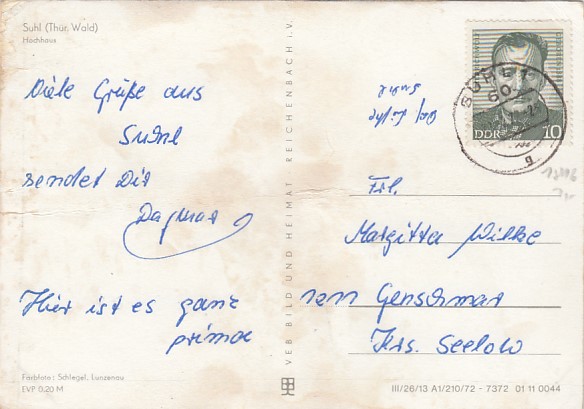 Suhl (Thür. Wald)
Hochhaus
Viele Grüße aus
Suhl
sendet Dir
Dagmar
Hier ist es ganz
prima
Farbfoto: Schlegel, Lunzenau
EVP 0.20 M
VEB BILD UND HEIMAT REICHENBACH i. V.
DDR 10
SUHL 1
60
g
Frl.
Margitta Wilke
1211 Genschmar
Krs. Seelow
III/26/13 A1/210/72 - 7372 01 11 0044